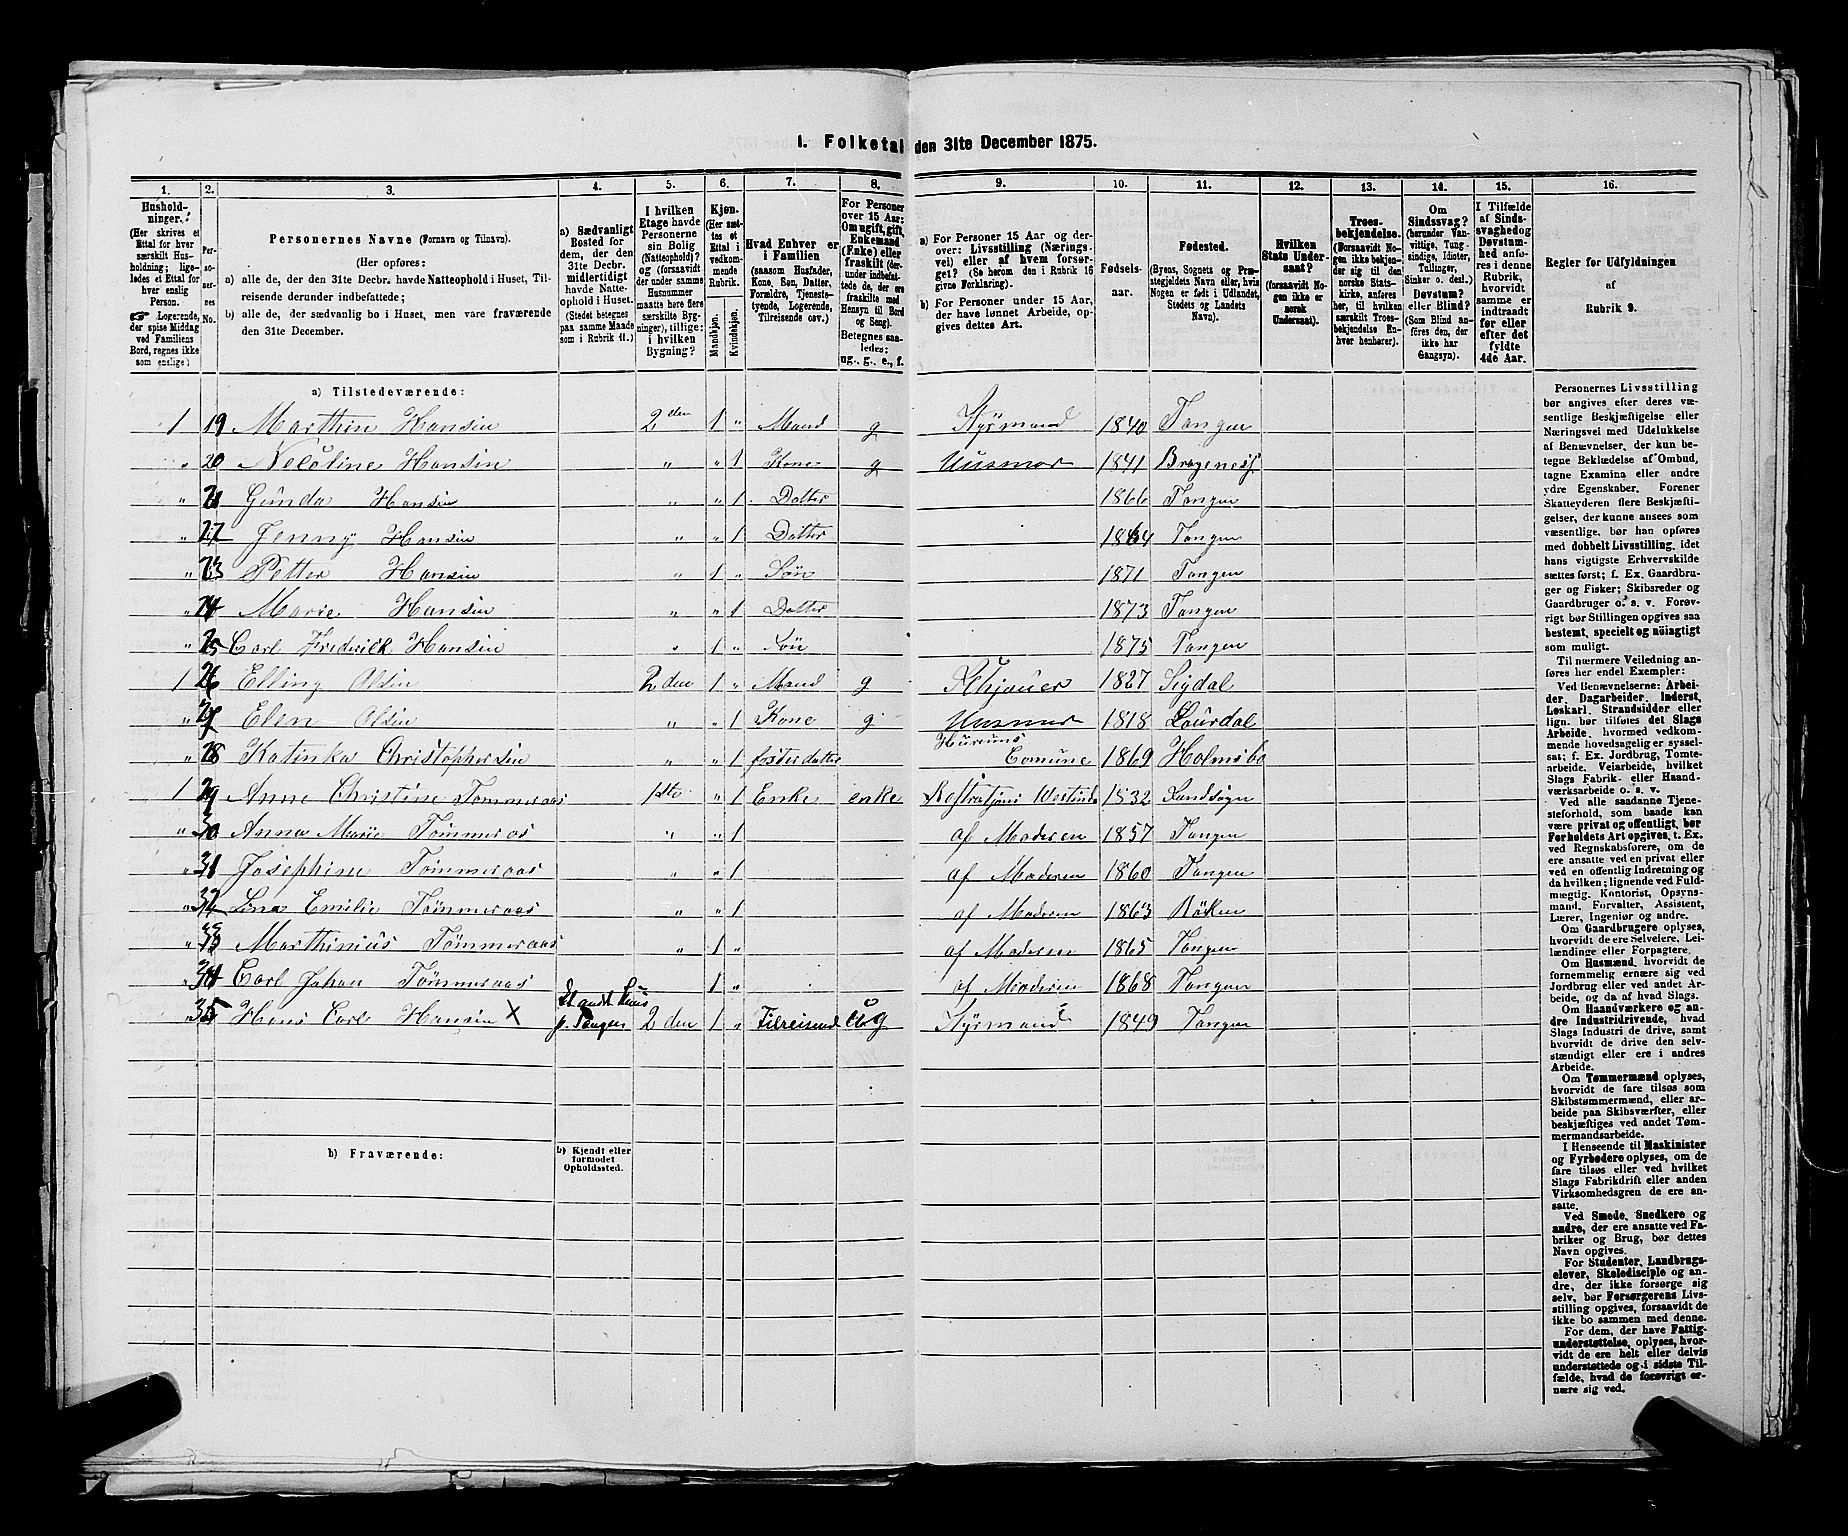 I. Folketal den 31te December 1875.
1. 2. 3. 4. 5. 6. 7. 8. 9. 10. 11. 12. 13. 14. 15. 16.
Hushold-
ninger.
(Her skrives et
Ettal for hver
særskilt Hus-
holdning; lige-
ledes et Ettal for
hver enslig
Person.
☞ Logerende,
der spise Middag
ved Familiens
Bord, regnes ikke
som enslige)
Per-
so-
ner-
nes
No.
Personernes Navne (Fornavn og Tilnavn).
(Her opføres:
a) alle de, der den 31te Decbr. havde Natteophold i Huset, Til-
reisende derunder indbefattede;
b) alle de, der sædvanlig bo i Huset, men vare fraværende
den 31te December.
a) Sædvanligt
Bosted for
dem, der den
31te Decbr.
midlertidigt
havde Natte-
ophold i Huset.
(Stedet betegnes
paa samme Maade
som i Rubrik 11.)
I hvilken
Etage havde
Personerne
sin Bolig
(Natteophold)?
og (forsaavidt
der under samme
Husnummer
maatte høre flere
særskilte Byg-
ninger), tillige:
i hvilken
Bygning?
Kjøn.
(Her sæt-
tes et
Ettal i
vedkom-
mende
Rubrik.
Mandkjøn.
Kvindekjøn.
Hvad Enhver er
i Familien
(saasom Husfader,
Kone, Søn, Datter,
Forældre, Tjeneste-
tyende, Logerende,
Tilreisende osv.)
For Personer
over 15 Aar:
Om ugift, gift,
Enkemand
(Enke) eller
fraskilt (der-
under indbefat-
tede de, der ere
fraskilte med
Hensyn til Bord
og Seng).
Betegnes saa-
ledes:
ug., g., e., f.
a) For Personer 15 Aar og der-
over: Livsstilling (Nærings-
vei) eller af hvem forsør-
get? (Se herom den i Rubrik 16
givne Forklaring).
b) For Personer under 15 Aar,
der have lønnet Arbeide, op-
gives dettes Art.
Fødsels-
aar.
Fødested.
(Byens, Sognets og Præ-
stegjeldets Navn eller, hvis
Nogen er født i Udlandet,
Stedets og Landets
Navn).
Hvilken
Stats Under-
saat?
(forsaavidt No-
gen ikke er
norsk
Undersaat).
Troes-
bekjendelse.
(Forsaavidt No-
gen ikke bekjen-
der sig til den
norske Stats-
kirke, anføres
her, til hvilken
særskilt Troes-
bekjendelse En-
hver henhører).
Om
Sindssvag?
(herunder Van-
vittige, Tung-
sindige, Idioter,
Tullinger,
Sinker o. desl.)
Døvstum?
eller Blind?
(Som Blind an-
føres den, der
ikke har
Gangsyn).
I Tilfælde
af Sinds-
svaghed og
Døvstum-
hed anfø-
res i denne
Rubrik,
hvorvidt
samme er
indtraadt
før eller
efter det
fyldte
4de Aar.
Regler for Udfyldningen
af
Rubrik 9.
a) Tilstedeværende:
1 19 Marthin Hansen 2den 1 " Mand g Styrmand 1840 Tangen
" 20 Hansen " " 1 Kone g Husmor 1841 Bragenes
" 21 Gunda Hansen " " 1 Datter 1866 Tangen
" 22 Jenny Hansen " " 1 Datter Tangen
" 23 Petter Hansen " 1 " Søn 1871 Tangen
" 24 Marie Hansen " " 1 Datter 1873 Tangen
" 25 Carl Frederik Hansen " 1 " Søn 1875 Tangen
1 26 Elling Olsen 2den 1 " Mand g 1827 Sigdal
" 27 Elen Olsen " " 1 Kone g Husmor 1818 Laurdal
" 28 Katinka Christophersen " " 1 fosterdatter Hurums Comune 1869 Holmsbo
1 29 Anne Christine Tømmeraas 1ste " 1 Enke enke 1832 Landsogn
" 30 Anna Marie Tømmeraas " " 1 af Moderen 1857 Tangen
" 31 Josephine Tømmeraas " " 1 af Moderen 1860 Tangen
" 32 Lina Emilie Tømmeraas " " 1 af Moderen 1863 Røken
" 33 Marthinius Tømmeraas " 1 " af Moderen 1865 Tangen
" 34 Carl Johan Tømmeraas 1 " af Moderen 1868 Tangen
" 35 Hans Carl Hansen X Et andt Huus p. Tangen 2den 1 " Tilreisend ug Styrmand 1849 Tangen
b) Fraværende:
b) Kjendt eller
formodet
Opholdssted.
Personernes Livsstilling
bør angives efter deres væ-
sentlige Beskjæftigelse eller
Næringsvei med Udelukkelse
af Benævnelser, der kun be-
tegne Beklædelse af Ombud,
tagne Examina eller andre
ydre Egenskaber. Forener
Skatteyderen flere Beskjæfti-
gelser, der kunne ansees som
væsentlige, bør han opføres
med dobbelt Livsstilling, idet
hans vigtigste Erhvervskilde
sættes først; f. Ex. Gaardbru-
ger og Fisker; Skibsreder og
Gaardbruger o. s. v. Forøv-
rigt bør Stillingen opgives saa
bestemt, specielt og nöiagtigt
som muligt.
Til nærmere Veiledning an-
føres her endel Exempler:
Ved Benævnelserne: Arbei-
der, Dagarbeider, Inderst,
Løskarl, Strandsidder eller
lign. bør tilføies det Slags
Arbeide, hvormed vedkom-
mende hovedsagelig er syssel-
sat; f. Ex. Jordbrug, Tomte-
arbeide, Veiarbeide, hvilket
Slags Fabrik- eller Haand-
værksarbeide o. s. v.
Ved alle saadanne Tjene-
steforhold, som baade kan
være privat og offentligt, bør
Forholdets Art opgives, t. Ex.
ved Regnskabsførere, om de
ere ansatte ved en privat eller
ved en offentlig Indretning og
da hvilken; lignende ved Fuld-
mægtig, Kontorist, Opsyns-
mand, Forvalter, Assistent,
Lærer, Ingeniør og andre.
Om Gaardbrugere oplyses,
hvorvidt de ere Selveiere, Lei-
lændinge eller Forpagtere.
Om Husmænd, hvorvidt de
fornemmelig ernære sig ved
Jordbrug eller ved andet Ar-
beide, og da af hvad Slags.
Om Haandværkere og an-
dre Industridrivende, hvad
Slags Industri de drive, samt
hvorvidt de drive den selv-
stændigt eller ere i andres
Arbeide.
Om Tømmermænd oplyses,
hvorvidt de fare tilsøs som
Skibstømmermænd, eller ar-
beide paa Skibsværfter, eller
beskjæftiges ved andet Tøm-
mermandsarbeide.
I Henseende til Maskinister
og Fyrbødere oplyses, om de
fare tilsøs eller ved hvilket
Slags Fabrikdrift eller anden
Virksomhedsgren de ere an-
satte.
Ved Smede, Snedkere og
andre, der ere ansatte ved Fa-
briker og Brug, bør dettes
Navn opgives.
For Studenter, Landbrugs-
elever, Skoledisciple og an-
dre, der ikke forsørge sig
selv, bør Forsørgerens Livs-
stilling opgives, forsaavidt de
ikke bo sammen med denne.
For dem, der have Fattig-
understøttelse, oplyses, hvor-
vidt de ere helt eller delvis
understøttede og i sidste Til-
fælde, hvad de forøvrigt er-
nære sig ved.